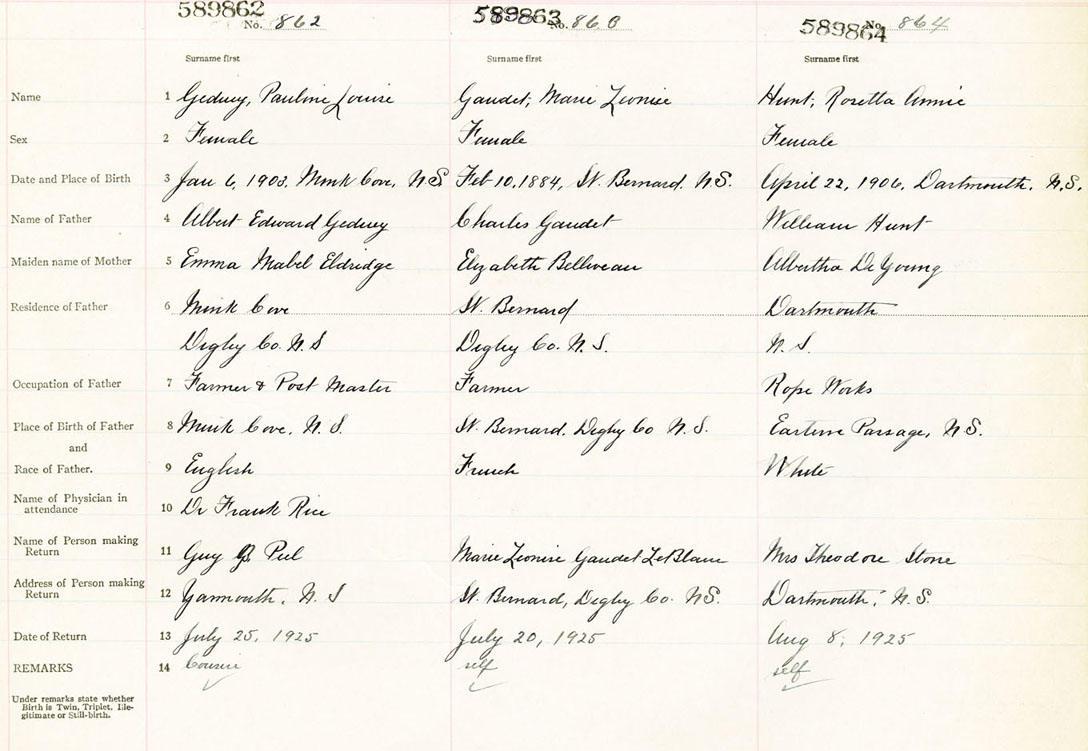 589862 589863 589864
No. 862 No. 863 No. 864
Surname first Surname first Surname first
Name 1 Gedney, Pauline Louise Gaudet, Marie Leonise Hunt, Rosetta Annie
Sex 2 Female Female Female
Date and Place of Birth 3 Jan 6, 1903. Mink Cove, N.S Feb 10, 1884, St. Bernard. N.S. April 22, 1906, Dartmouth. N.S.
Name of Father 4 Albert Edward Gedney Charles Gaudet William Hunt
Maiden name of Mother 5 Emma Mabel Eldridge Elizabeth Belliveau Albertha De Young
Residence of Father 6 Mink Cove St. Bernard Dartmouth
Digby Co. N.S Digby Co. N.S. N.S.
Occupation of Father 7 Farmer & Post Master Farmer Rope Works
Place of Birth of Father 8 Mink Cove, N.S. St. Bernard, Digby Co N.S. Eastern Passage, N.S.
and
Race of Father. 9 English French White
Name of Physician in
attendance 10 Dr Frank Rice
Name of Person making
Return 11 Guy Peel Marie Leonise Gaudet LeBlanc Mrs Theodore Stone
Address of Person making
Return 12 Yarmouth, N.S St. Bernard, Digby Co. N.S. Dartmouth, N.S.
Date of Return 13 July 25, 1925 July 20, 1925 Aug 8, 1925
REMARKS 14 Cousin self self
Under remarks state whether
Birth is Twin, Triplet, Ille-
gitimate or Still-birth.